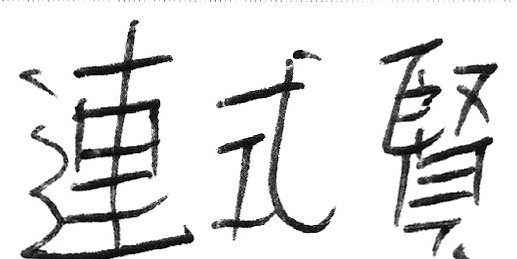 連式賢